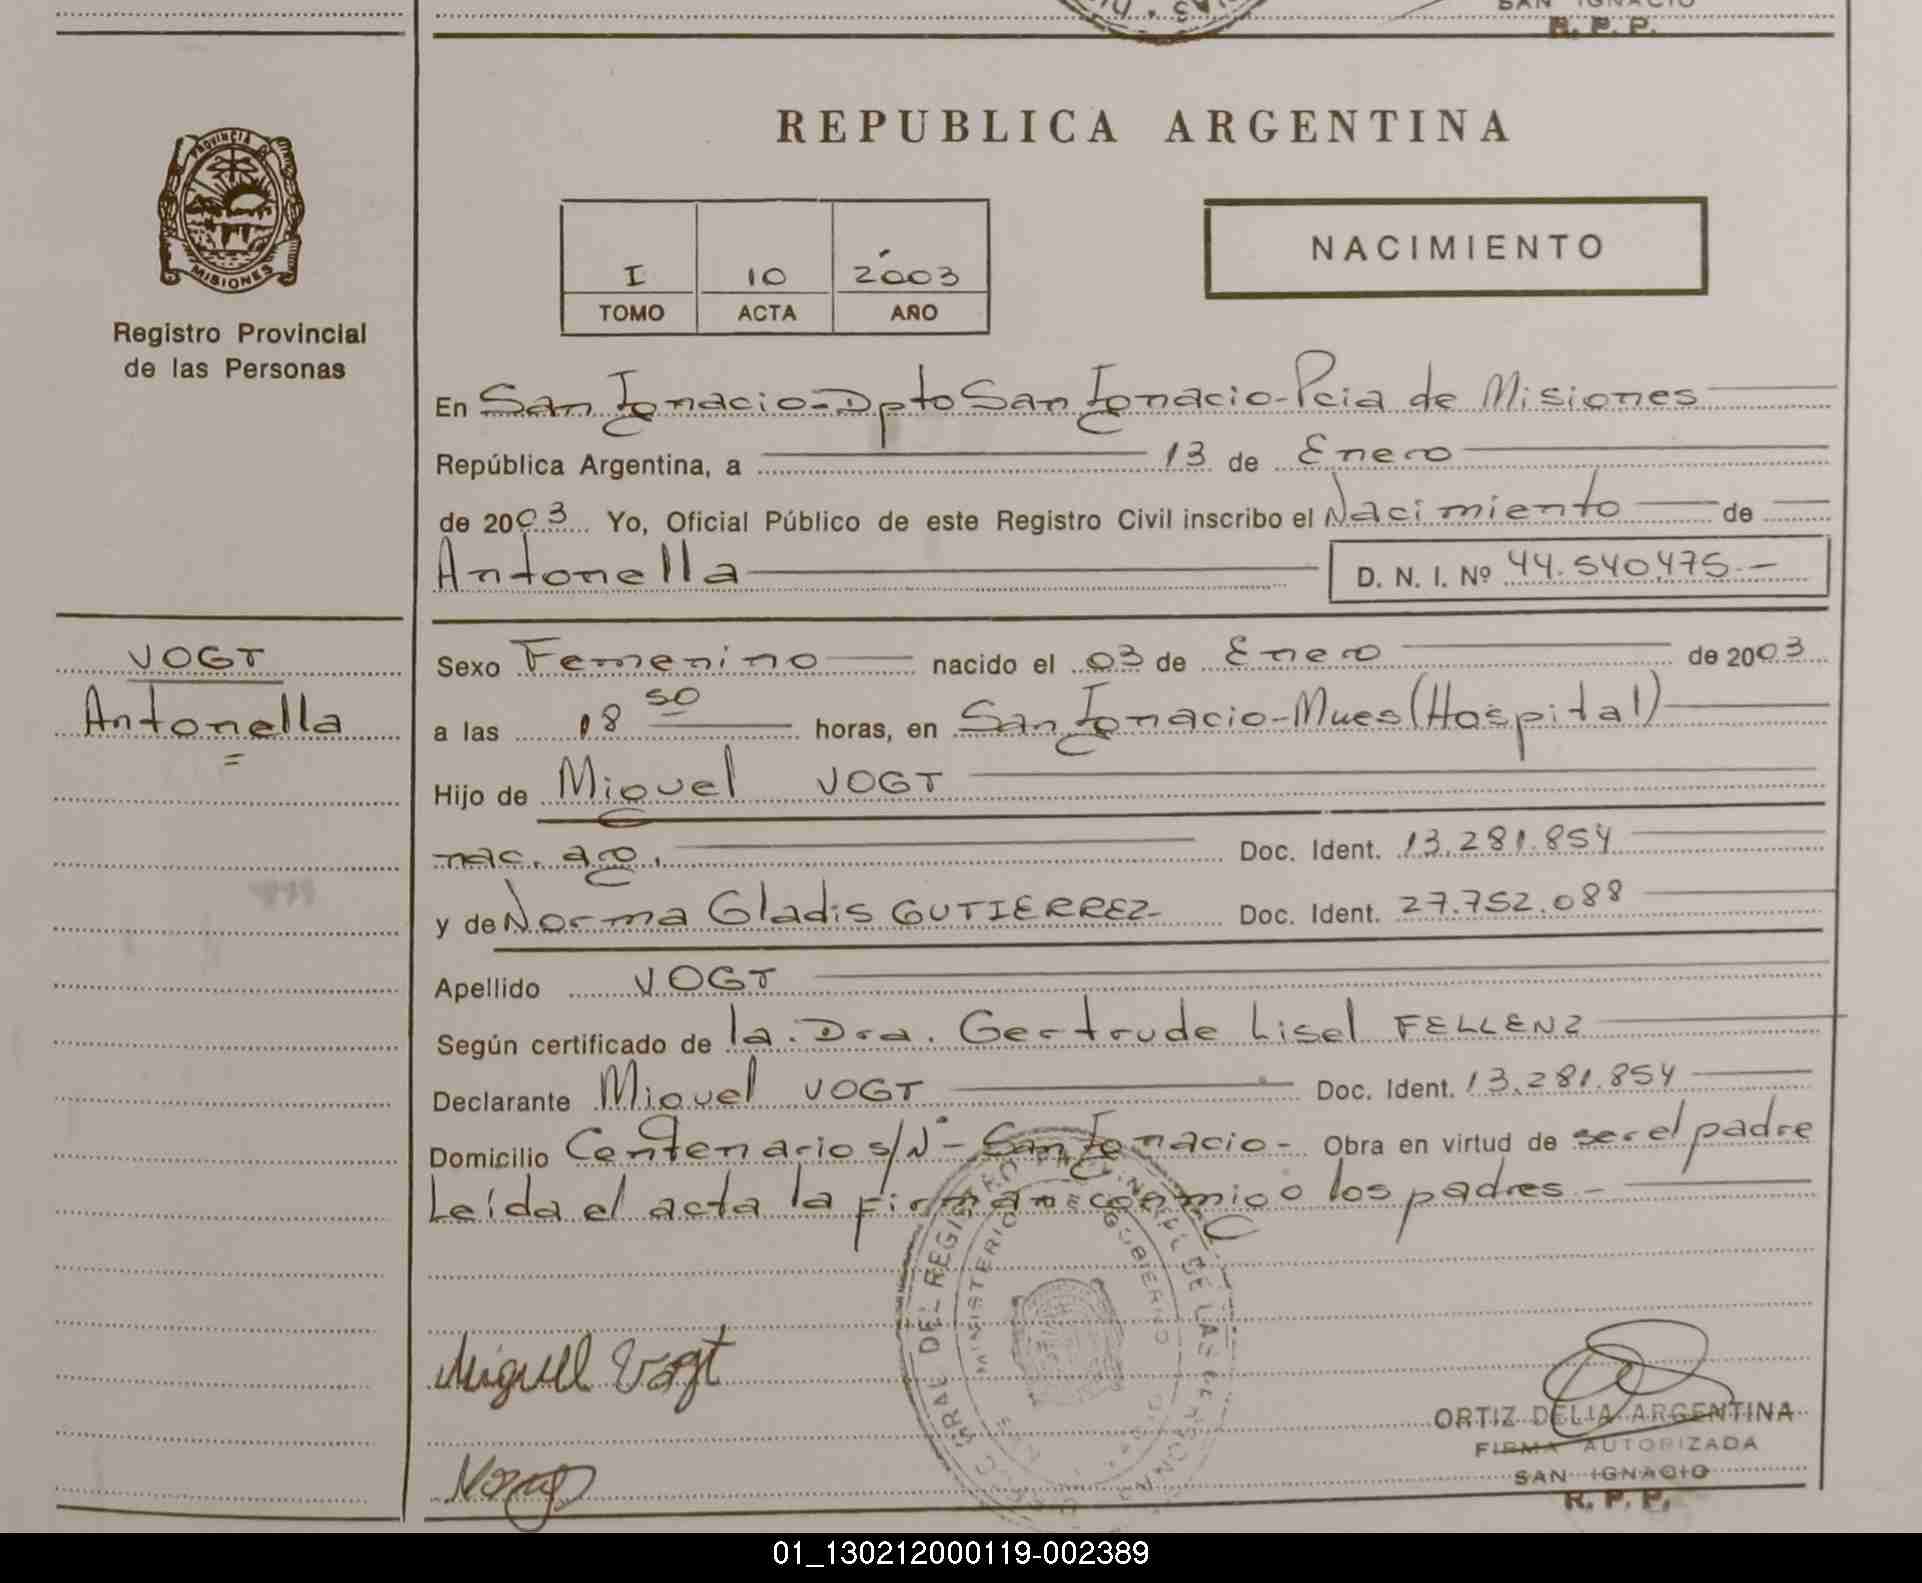 SAN IGNACIO
R. P. P.
PROVINCIA DE
MISIONES
Registro Provincial
de las Personas
REPUBLICA ARGENTINA
I 10 2003
TOMO ACTA AÑO
NACIMIENTO
En San Ignacio-Dpto San Ignacio-Pcia de Misiones
República Argentina, a 13 de Enero
de 2003 Yo, Oficial Público de este Registro Civil inscribo el Nacimiento de
Antonella D. N. I. Nº 44.540.475.-
VOGT
Antonella
Sexo Femenino nacido el 03 de Enero de 2003
a las 18 50 horas, en San Ignacio-Mnes (Hospital)
Hijo de Miguel VOGT
nac. arg. Doc. Ident. 13.281.854
y de Norma Gladis GUTIERREZ Doc. Ident. 27.752.088
Apellido VOGT
Según certificado de la. Dra. Gertrude Lisel FELLENZ
Declarante Miguel VOGT Doc. Ident. 13.281.854
Domicilio Centenario s/Nº- San Ignacio- Obra en virtud de ser el padre
Leída el acta la firman conmigo los padres.-
DEL REGISTRO DE LAS
MINISTERIO GOBIERNO
Miguel Vogt
ORTIZ DELIA ARGENTINA
FIRMA AUTORIZADA
SAN IGNACIO
R. P. P.
01_130212000119-002389